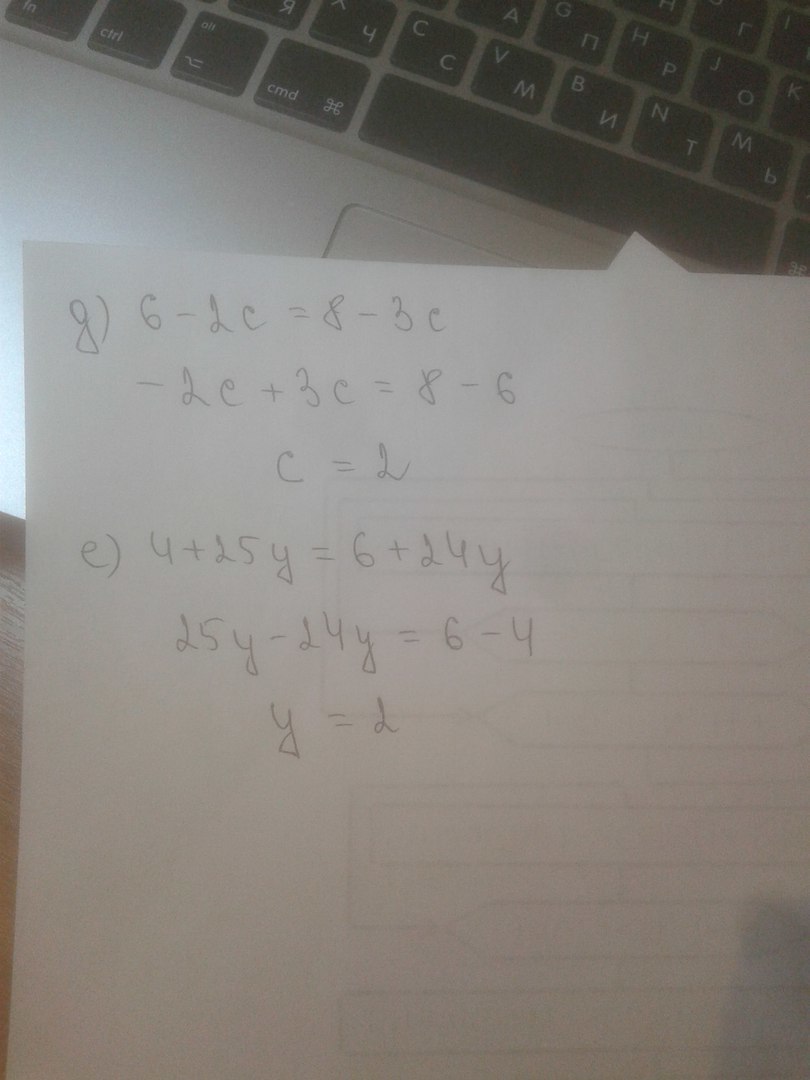 fn
ctrl
alt
⌥
cmd ⌘
Я
Ч
C С
V М
B И
N Т
M Ь
А
G П
H Р
J О
K
Г
⌘
д) 6 - 2c = 8 - 3c
- 2c + 3c = 8 - 6
c = 2
е) 4 + 25y = 6 + 24y
25y - 24y = 6 - 4
y = 2